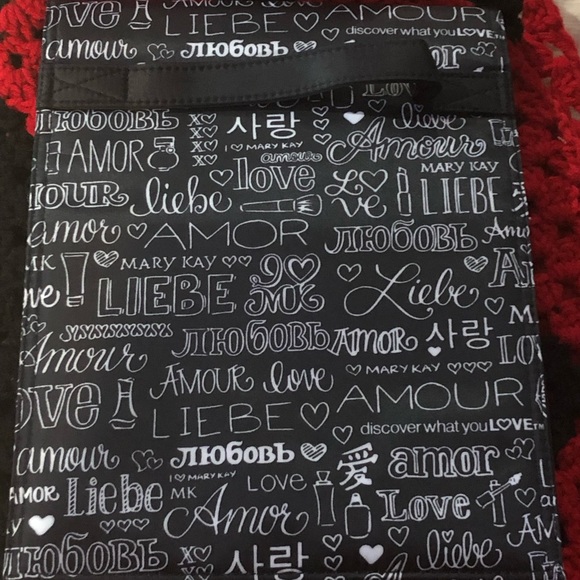 AMOUR
LIEBE
discover what you LOVE™
amour любовь
Love liebe
ЛЮБОВЬ XO 사랑 Amour
XO I ♡ MARY KAY
AMOR XO amour MARY KAY
love LOVE LIEBE
liebe
amour AMOR ЛЮБОВЬ
MK MARY KAY ♡♡♡
LIEBE MK Liebe
XXXXXXXXXX ЛЮБОВЬ AMOR 사랑
Amour I ♡ MARY KAY ♡♡♡
AMOUR love AMOUR
LIEBE discover what you LOVE™
amour любовь 愛 amor
I ♡ MARY KAY LOVE
AMOR Liebe MK Love
Amor
ЛЮБОВЬ XO 사랑 liebe